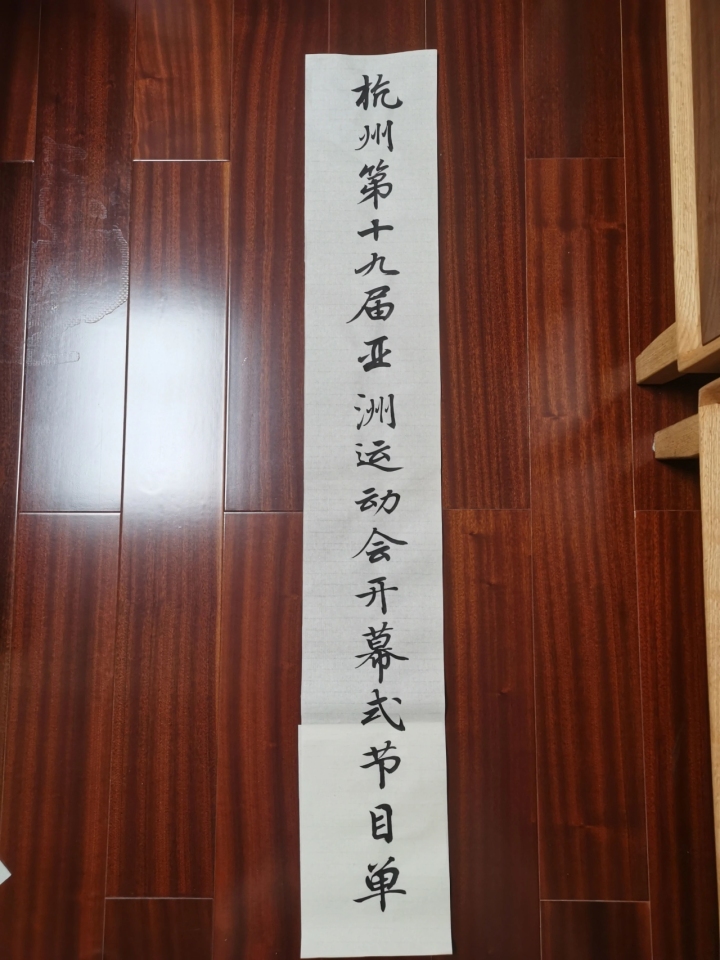 杭州第十九届亚洲运动会开幕式节目单